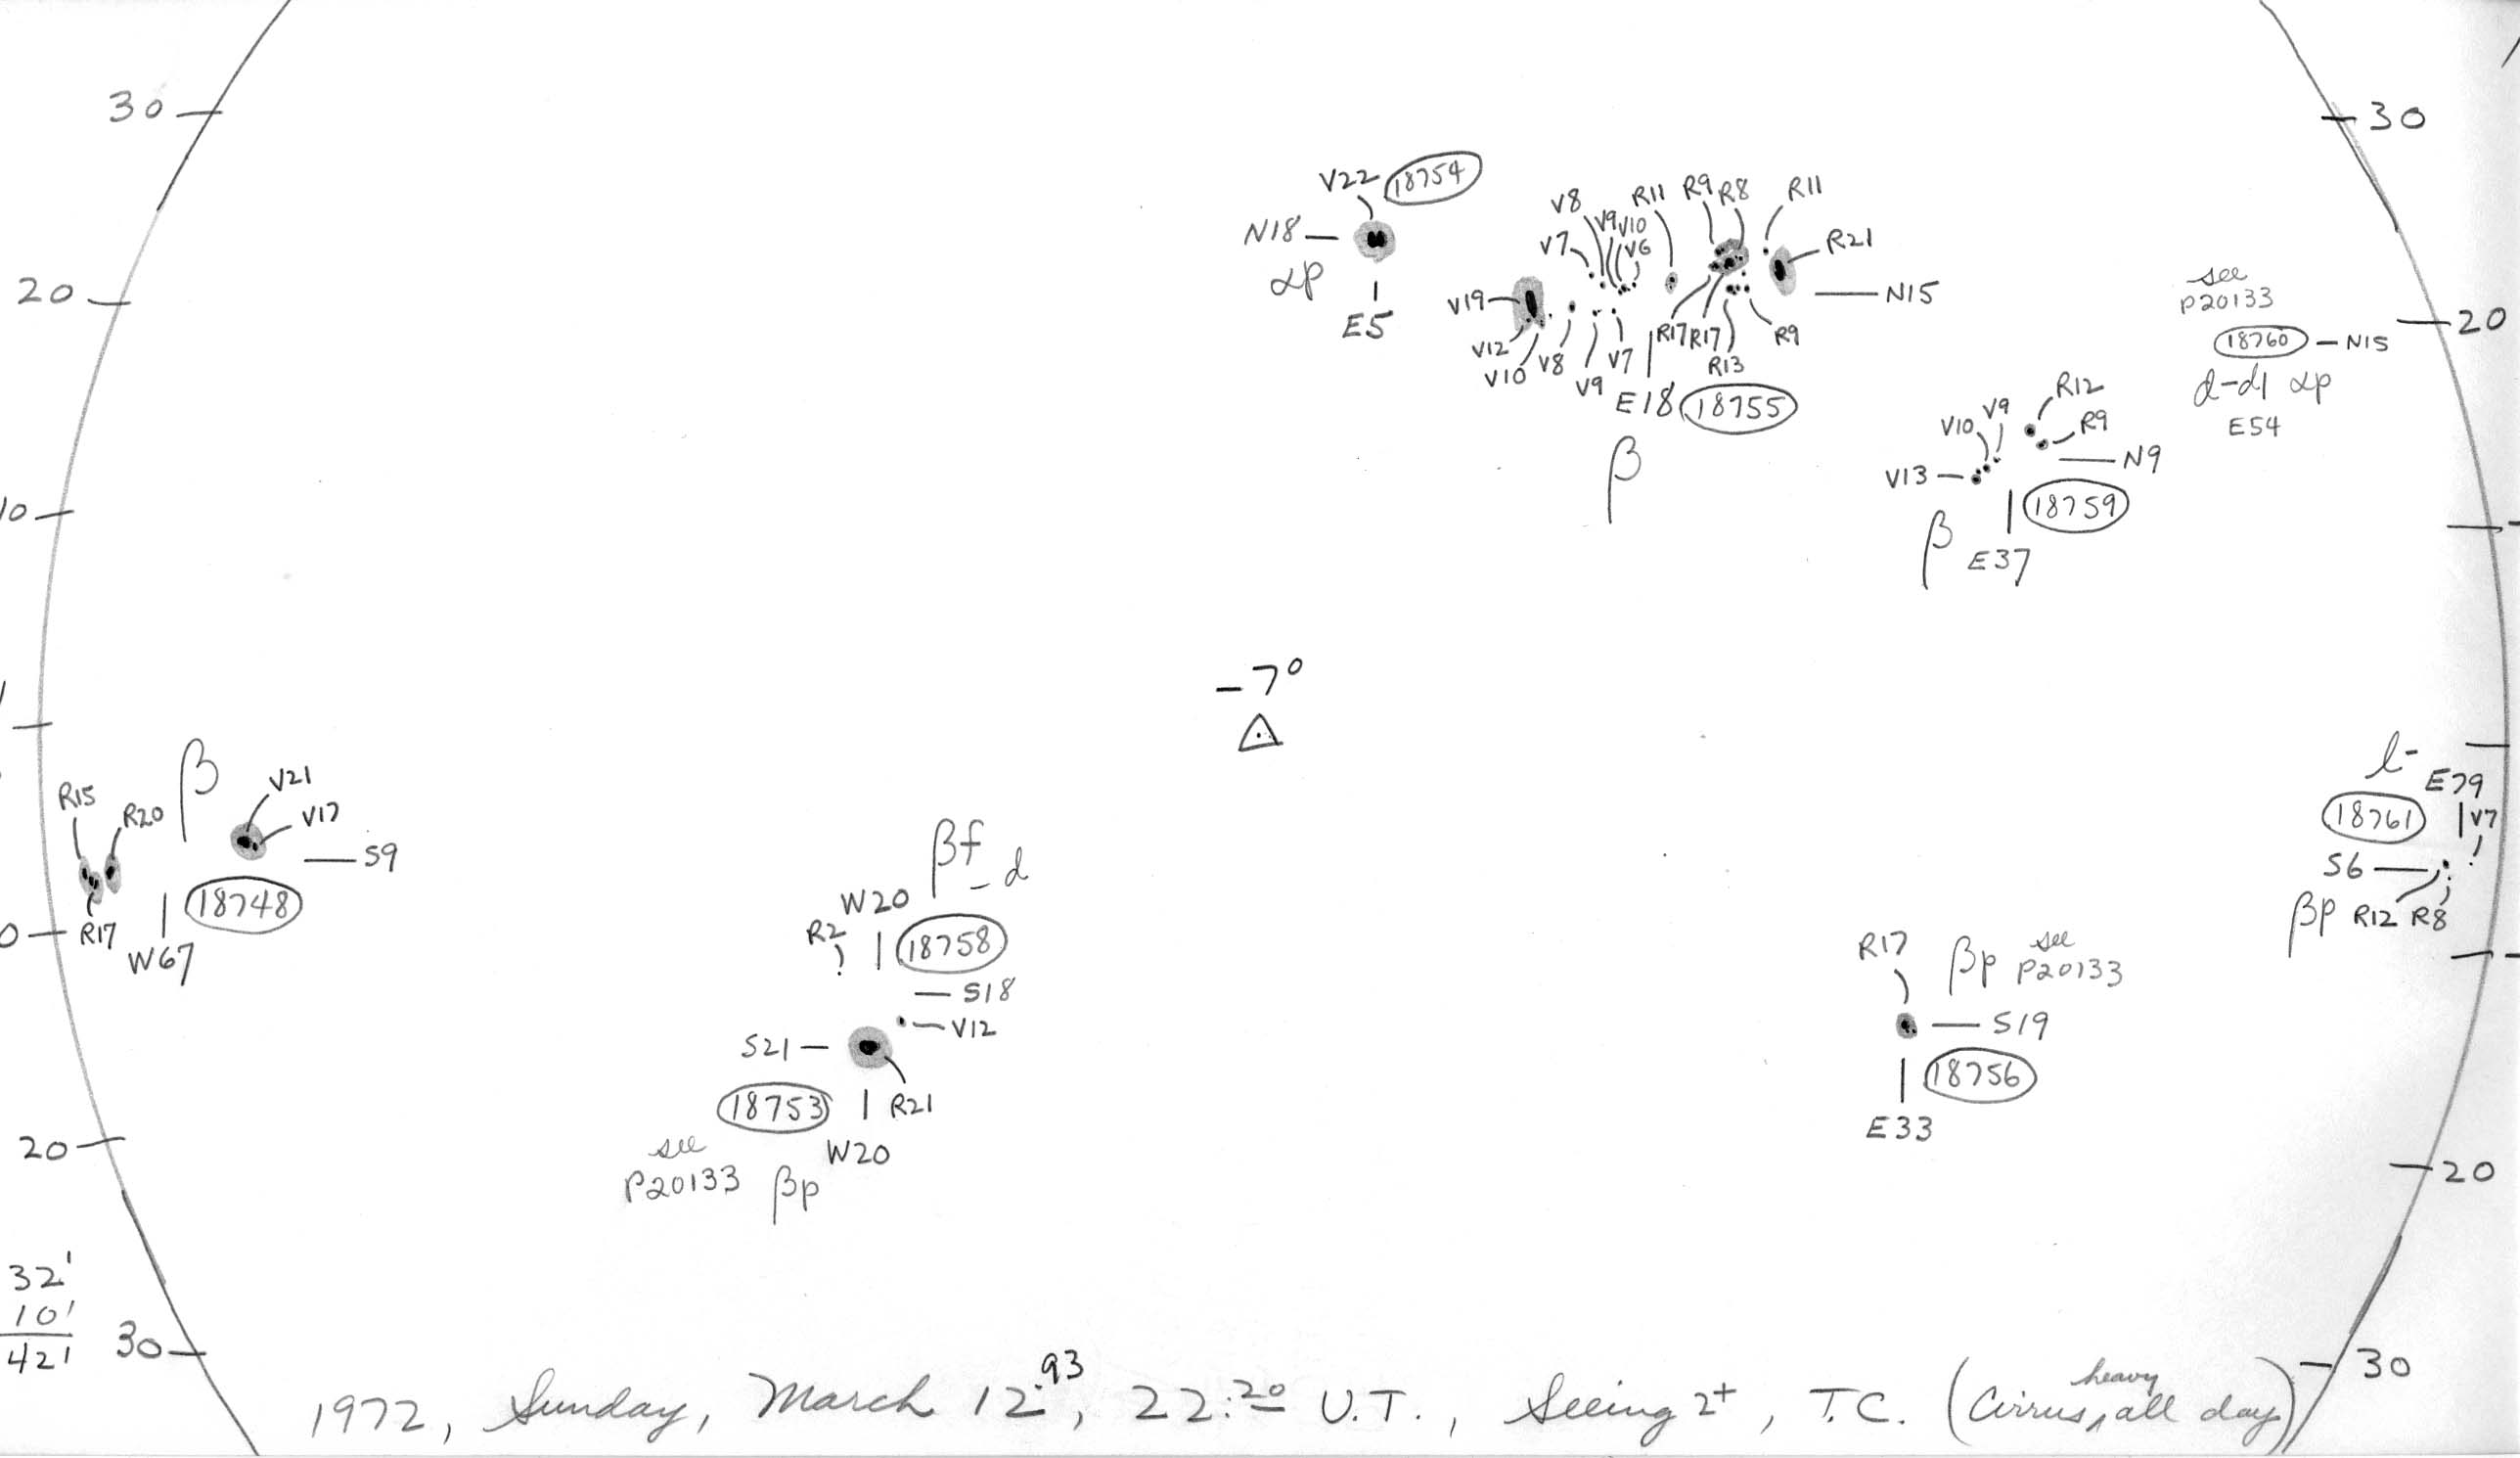 30
30
V22 18754
N18
αp
E5
V8
V9
V10
R11
R9
R8
R11
V7
V6
R21
V19
N15
V12
V10
V8
V9
V7
R17
R17
R13
R9
E18 18755
β
20
see
P20133
20
18760 — N15
d-d1 αp
E54
R12
V9
R9
V10
N9
V13
18759
β E37
10
-7°
β
V21
R15
R20
V17
S9
18748
R17
W67
βf
d
W20
R2
18758
S18
V12
S21
18753
R21
W20
see
P20133 βp
l-
E79
18761
V7
S6
βp R12 R8
R17
βp see
P20133
S19
18756
E33
20
20
32'
10'
421
30
30
1972, Sunday, March 12.93, 22:20 U.T., Seeing 2+, T.C. (Cirrus, heavy all day)